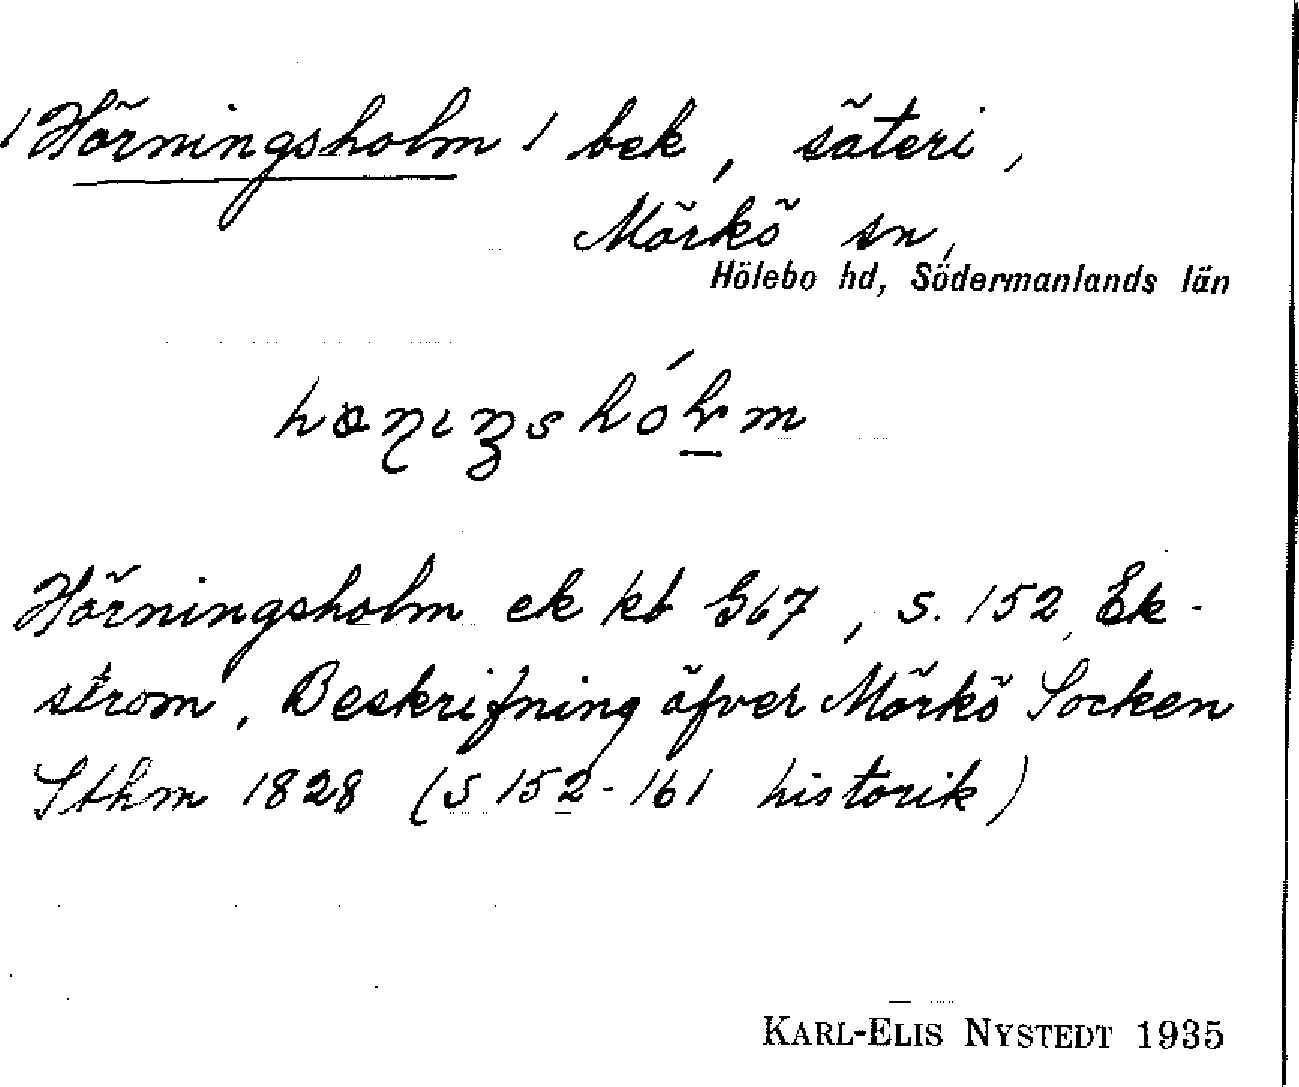 /Hörningsholm/ bek, säteri,
Mörkö sn,
Hölebo hd, Södermanlands län
Hörningsholm ek kb G67, s. 152, Ek-
ström, Beskrifning öfver Mörkö Socken
Sthm 1828 (S 152-161 historik)
KARL-ELIS NYSTEDT 1935